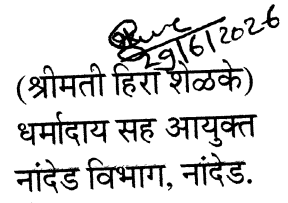 29/6/2026
(श्रीमती हिरा शेळके)
धर्मादाय सह आयुक्त
नांदेड विभाग, नांदेड.